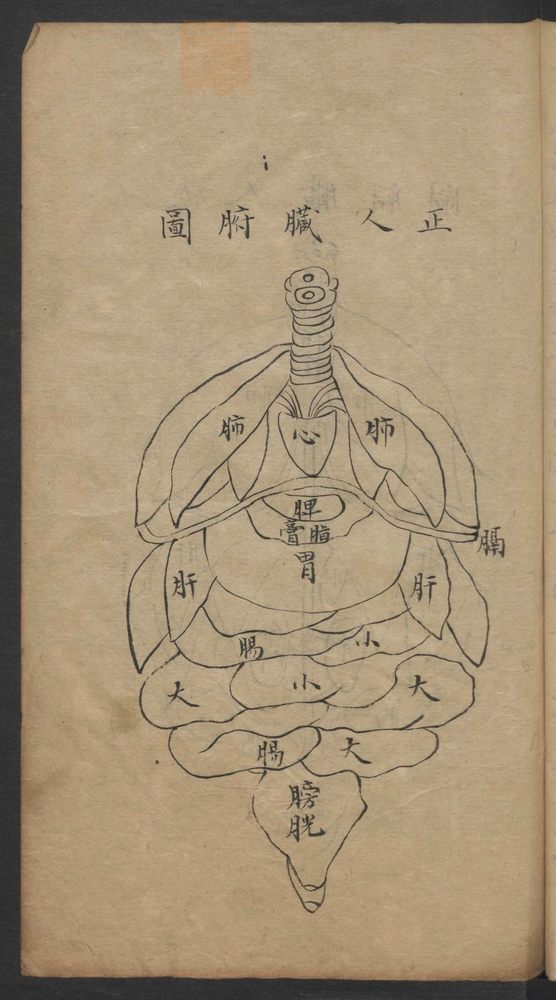 正人臟腑圖
肺 心 肺
脾
膏脂
胃
膈
肝 肝
腸 小
大 小 大
腸 大
膀
胱